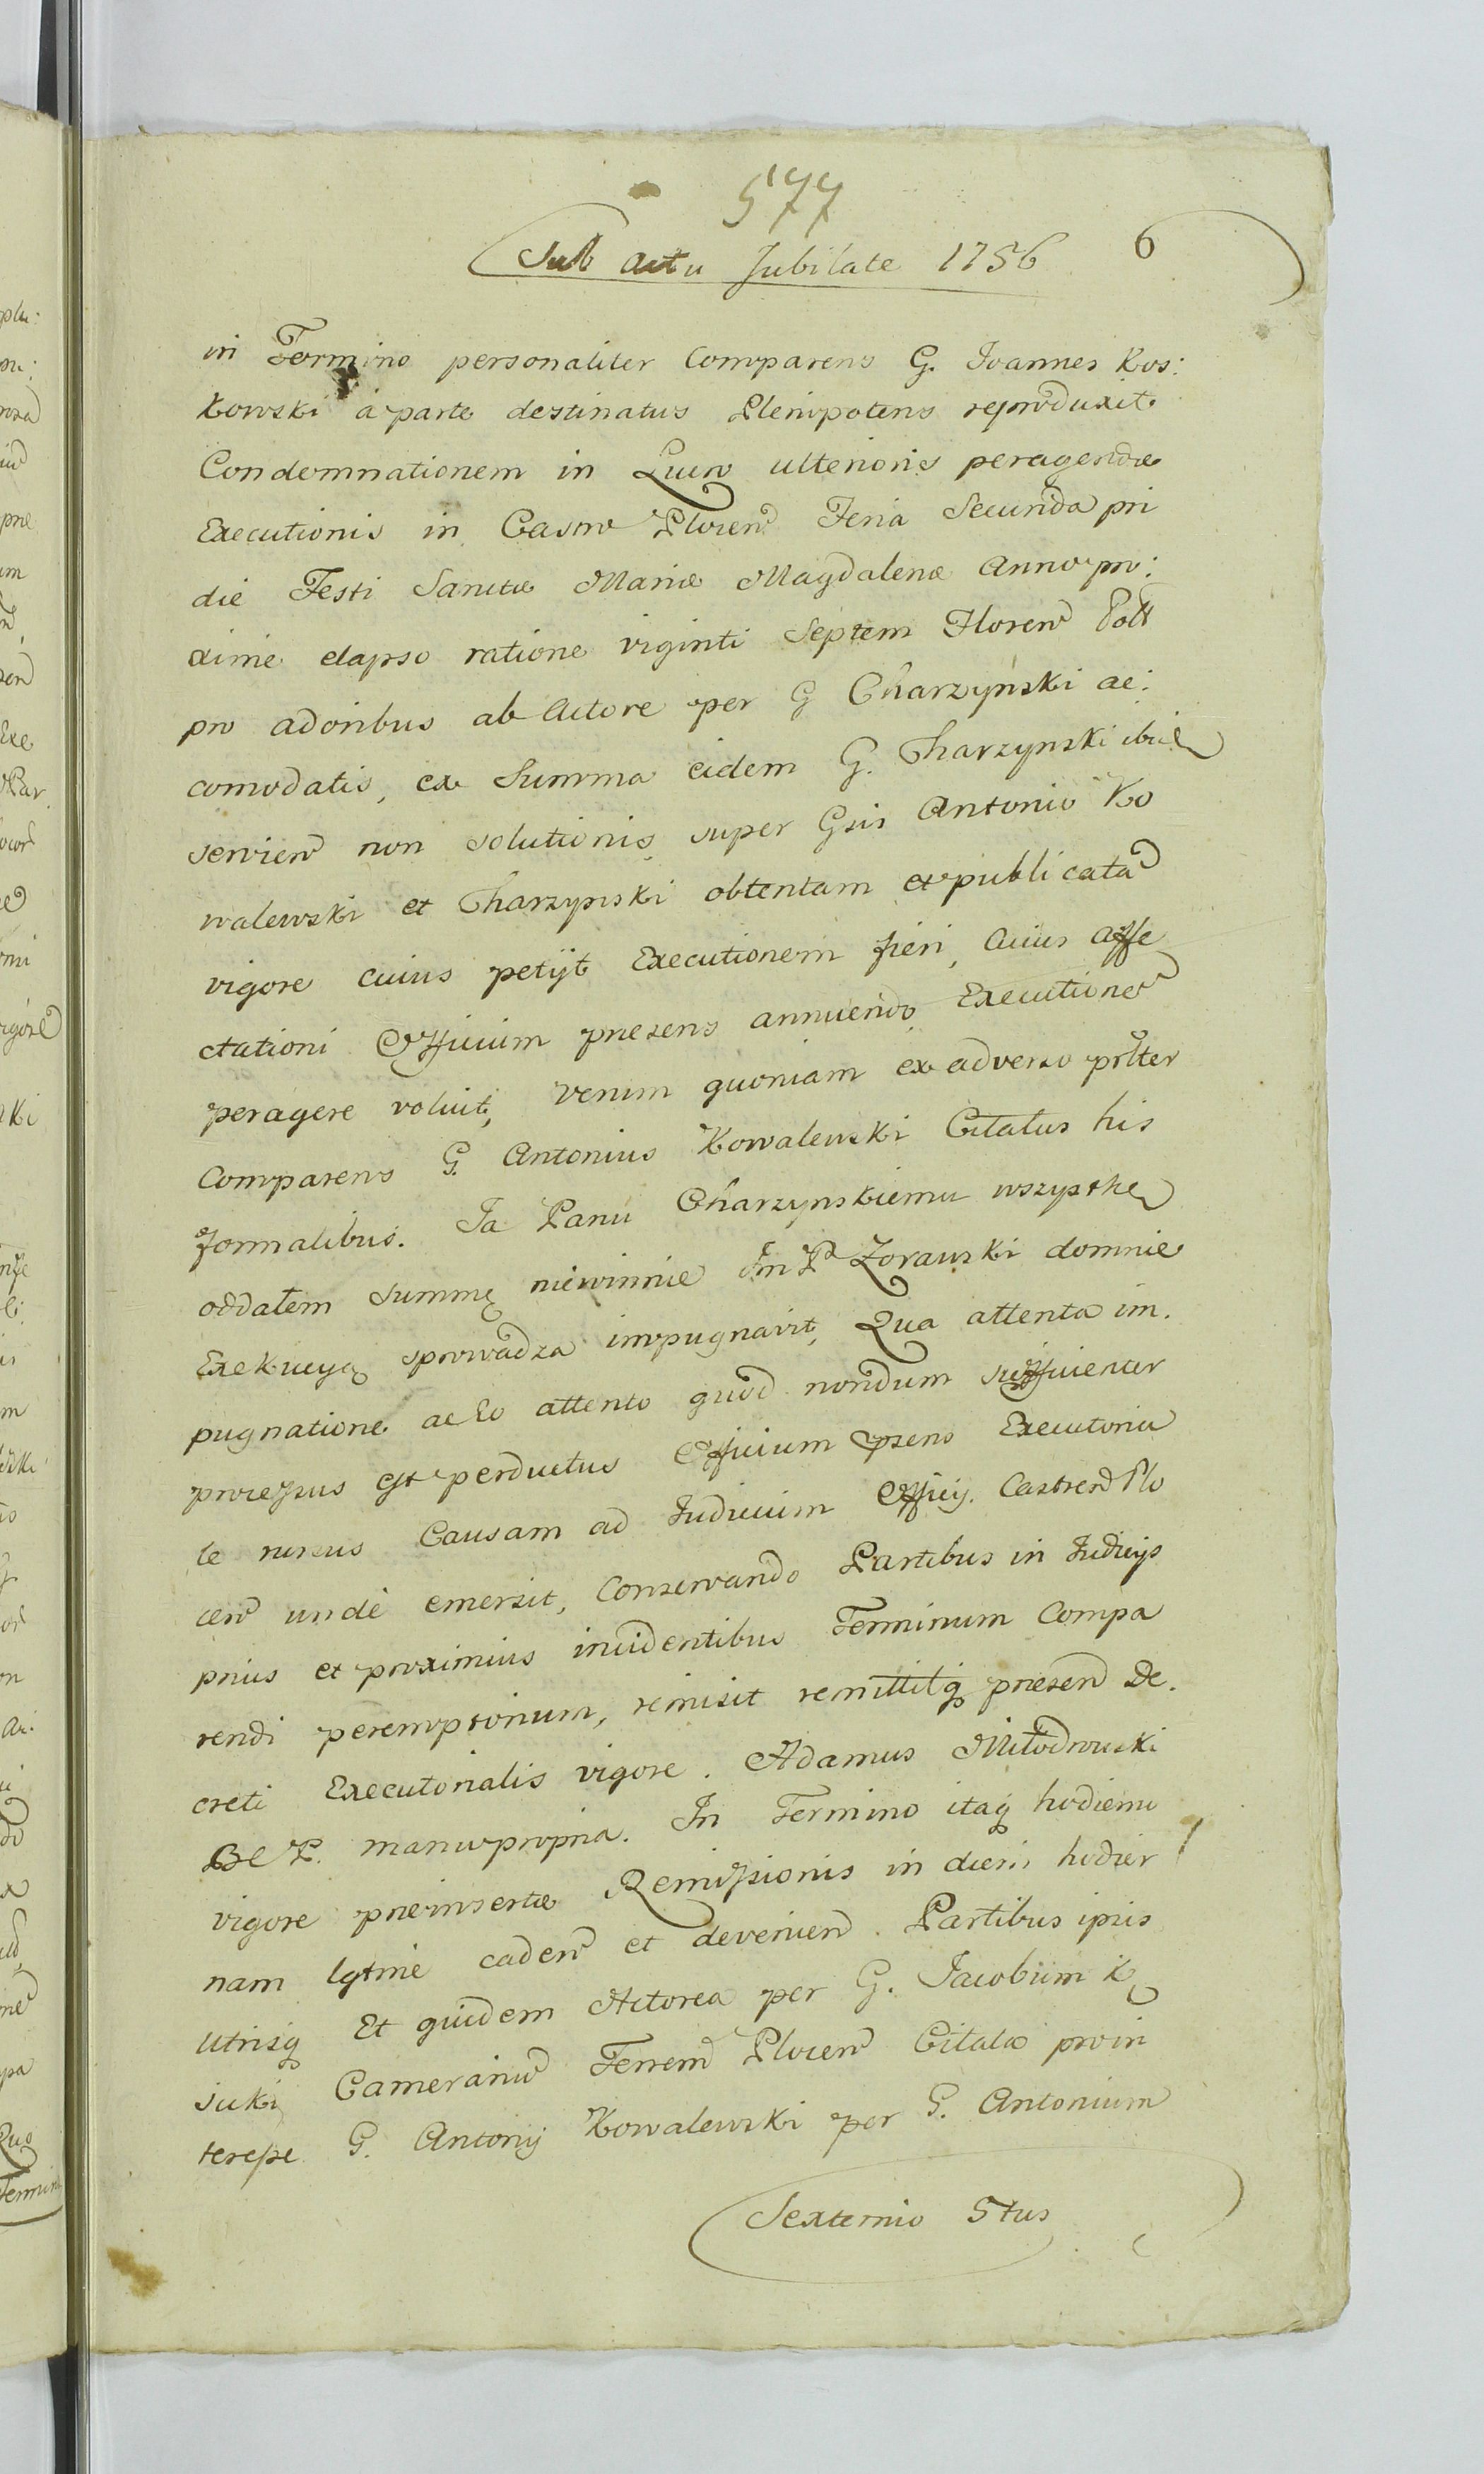 577
Sub actu Jubilate 1756 6
in Termino personaliter Comparens G. Joannes Kos:
kowski à parte destinatus Plenipotens reproduxit
Condemnationem in Quem ulterioris peragendæ
Executionis in Castro Plocen Feria Secunda pri
die Festi Sanctæ Mariæ Magdalenæ Anno pro:
xime elapso ratione viginti Septem Floren Poll
pro adoribus ab Actore per G Charzynski ac:
comodatis, ex Summa eidem G. Charzynski ibid
servien non solutionis super Gsis Antonio Ko
walewski et Charzynski obtentam et publicata
vigore cuius petijt Executionem fieri, Cuius affe
ctationi Officium præsens annuendo Executione
peragere voluit, Verum quoniam ex adverso prlter
Comparens G. Antonius Kowalewski Citatus his
formalibus. Ja Panu Charzynskiemu wszystke
oddałem Summę niewinnie Jm P Zorawski domnie
Exekucyą sprowadza impugnavit, Qua attenta im.
pugnatione ac Eo attento quod nondum sufficienter
processus est perductus Officium præns Executoria
le rursus Causam ad Iudicium Officij Castren Plo
cen unde emersit, Conservando Partibus in Iudicijs
prius et proximius incidentibus Terminum Compa
rendi peremptorium, remisit remittitq præsen De.
creti Executorialis vigore. Adamus Młodrowski
manu propria. In Termino itaq hodierno
vigore præinsertæ Remissionis in diem hodier
nam lgtme caden et devenien. Partibus ipsis
Utrisq Et quidem Actorea per G. Jacobum K
suki Camerariu Terren Plocen Citata pro in
teresse G. Antonij Kowalewski per G. Antonium
Sexternio 5tus